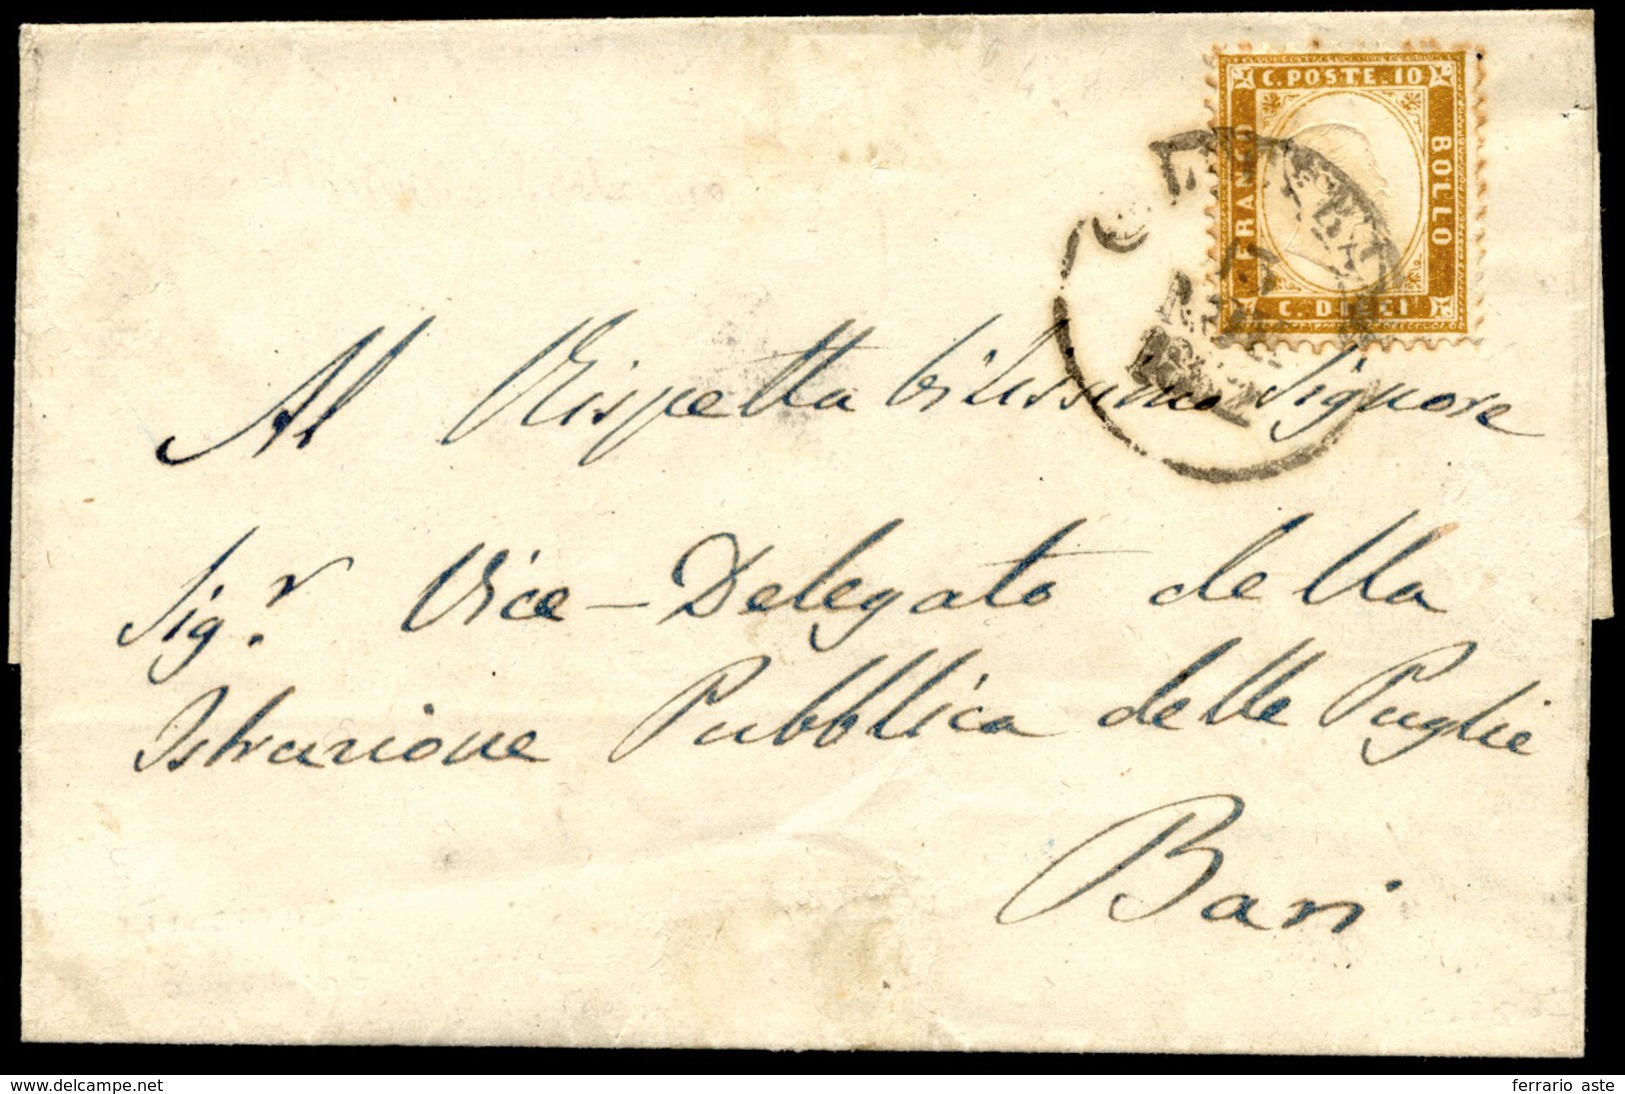 C. POSTE. 10
FRANCO
BOLLO
C. DIECI
Al Rispettabilissimo Signore
Sig.r Vice-Delegato della
Istruzione Pubblica delle Puglie
Bari
www.delcampe.net
ferrario aste